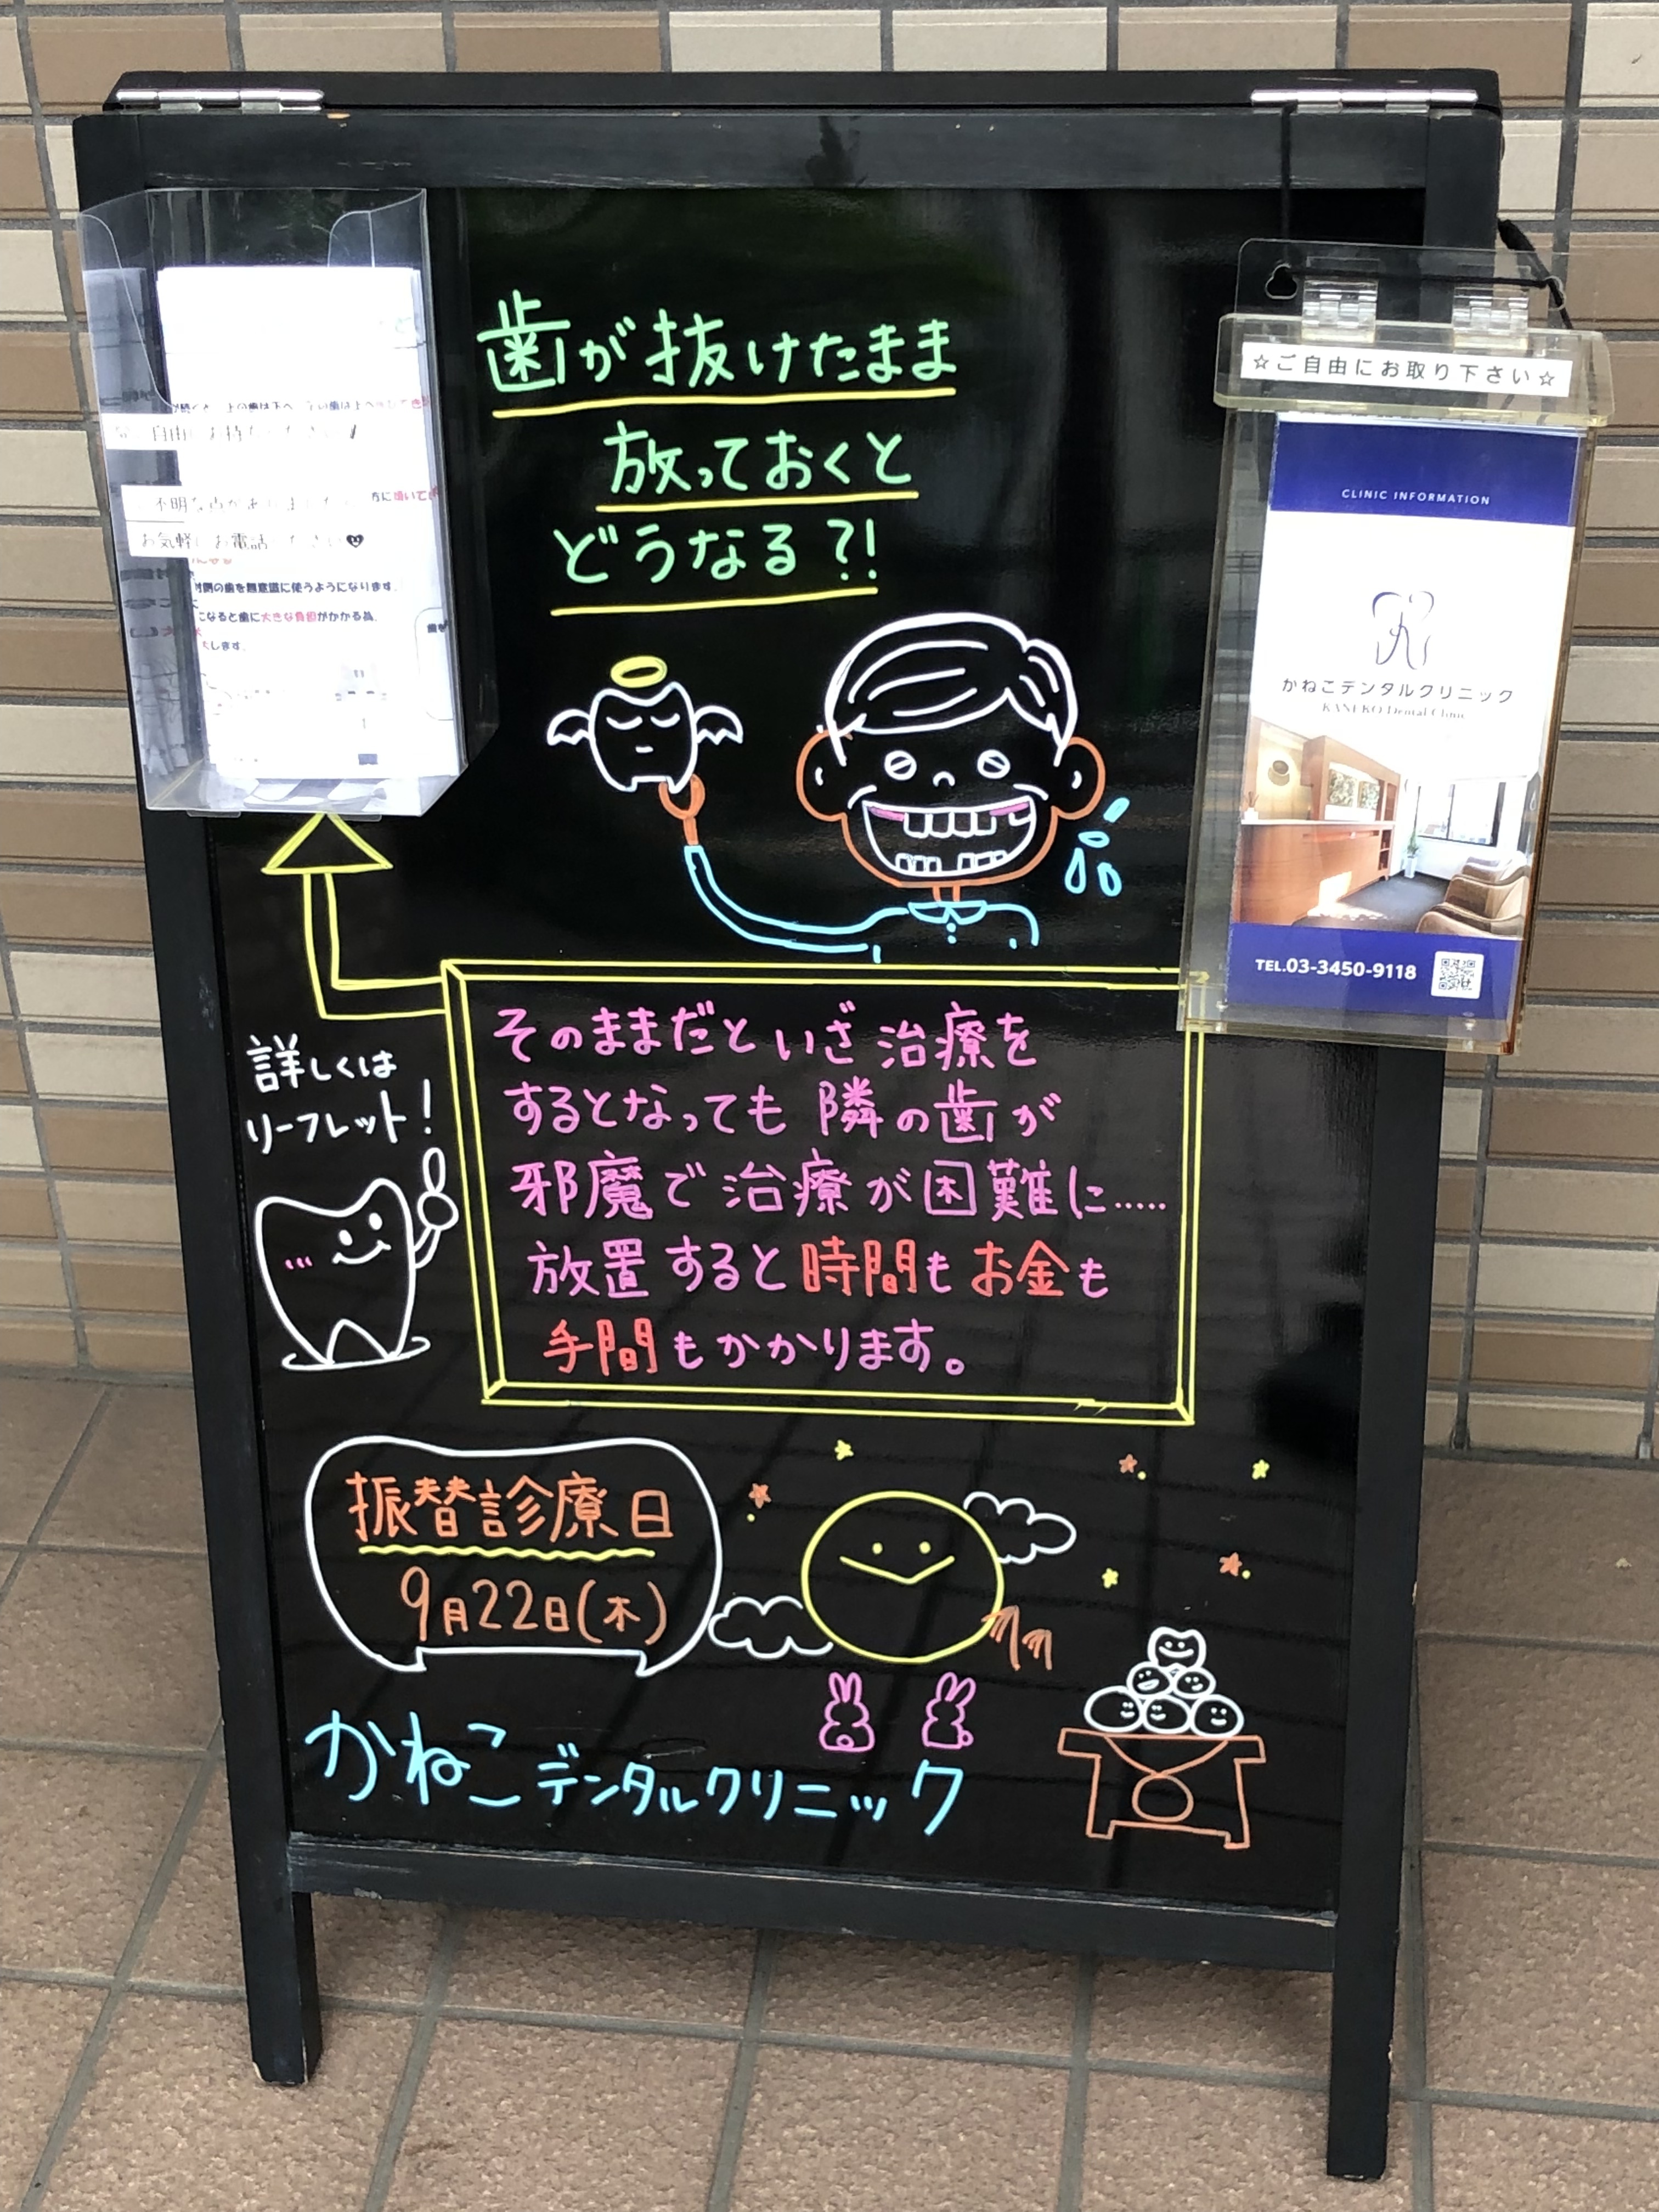 歯が抜けたまま
放っておくと
どうなる?!
☆ご自由にお取り下さい☆
CLINIC INFORMATION
かねこデンタルクリニック
KANEKO Dental Clinic
TEL.03-3450-9118
お気軽にお電話ください
側の歯を無意識に使うようになります。
になると歯に大きな負担がかかる為、
します。
詳しくは
リーフレット!
そのままだといざ治療を
するとなっても隣の歯が
邪魔で治療が困難に……
放置すると時間もお金も
手間もかかります。
振替診療日
9月22日(木)
かねこデンタルクリニック